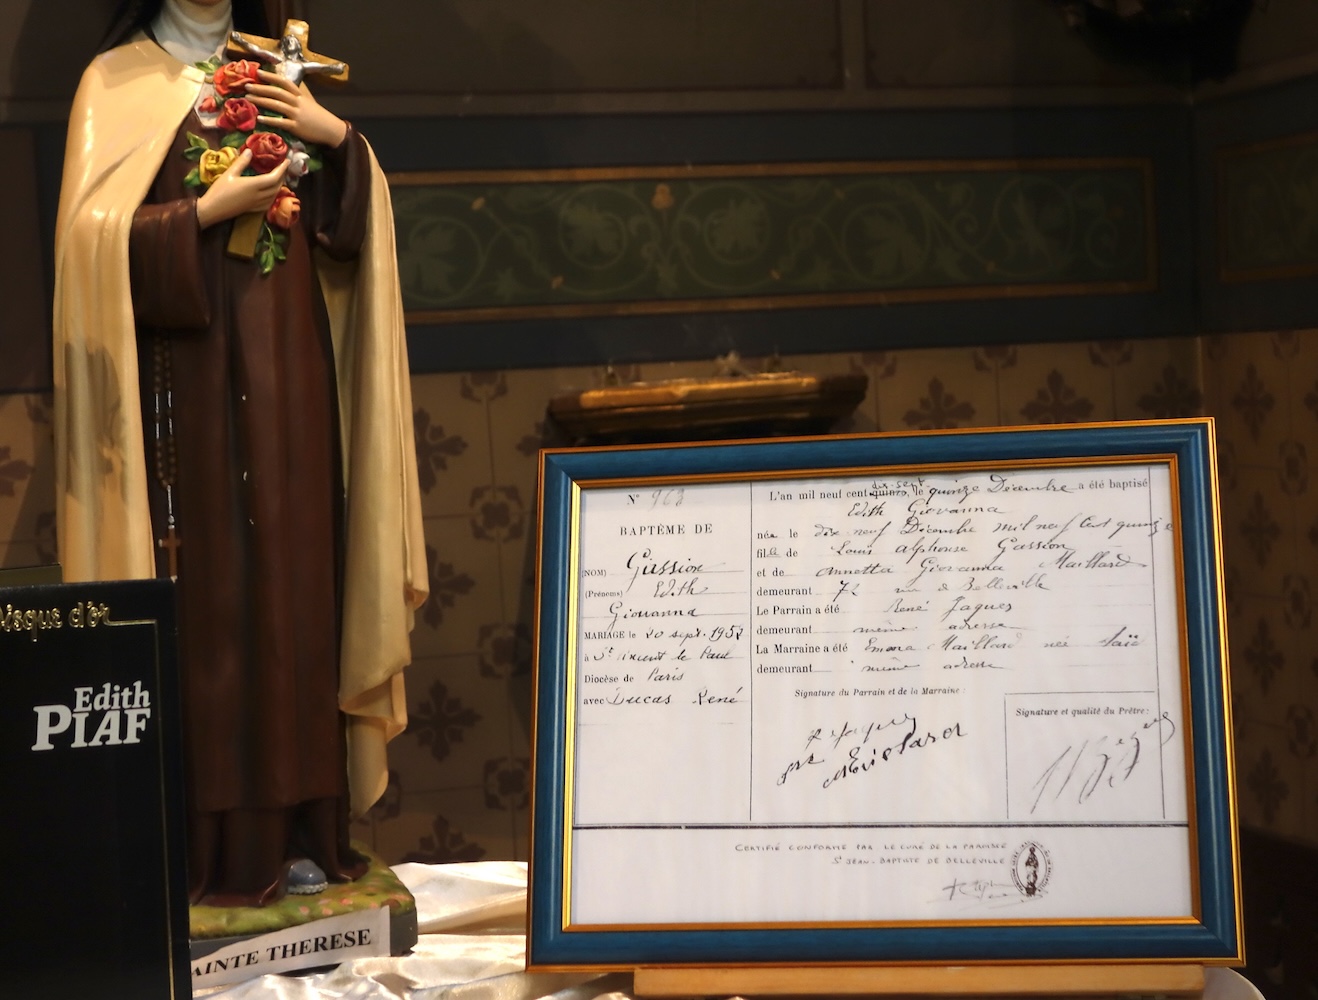 Disque d'or
Edith
PIAF
AINTE THERESE
N° 963
BAPTÊME DE
(NOM) Gassion
(Prénoms) Edith
Giovanna
MARIAGE le 20 sept. 1952
à St Vincent de Paul
Diocèse de Paris
avec Ducas René
L'an mil neuf cent quinze, dix-sept le quinze Décembre a été baptisé
Edith Giovanna
née le dix-neuf Décembre mil neuf cent quinze
fille de Louis Alphonse Gassion
et de Annetta Giovanna Maillard
demeurant 72 rue de Belleville
Le Parrain a été René Jaques
demeurant même adresse
La Marraine a été Emma Maillard née Saïd
demeurant même adresse
Signature du Parrain et de la Marraine :
Signature et qualité du Prêtre :
CERTIFIÉ CONFORME PAR LE CURÉ DE LA PAROISSE
St JEAN-BAPTISTE DE BELLEVILLE